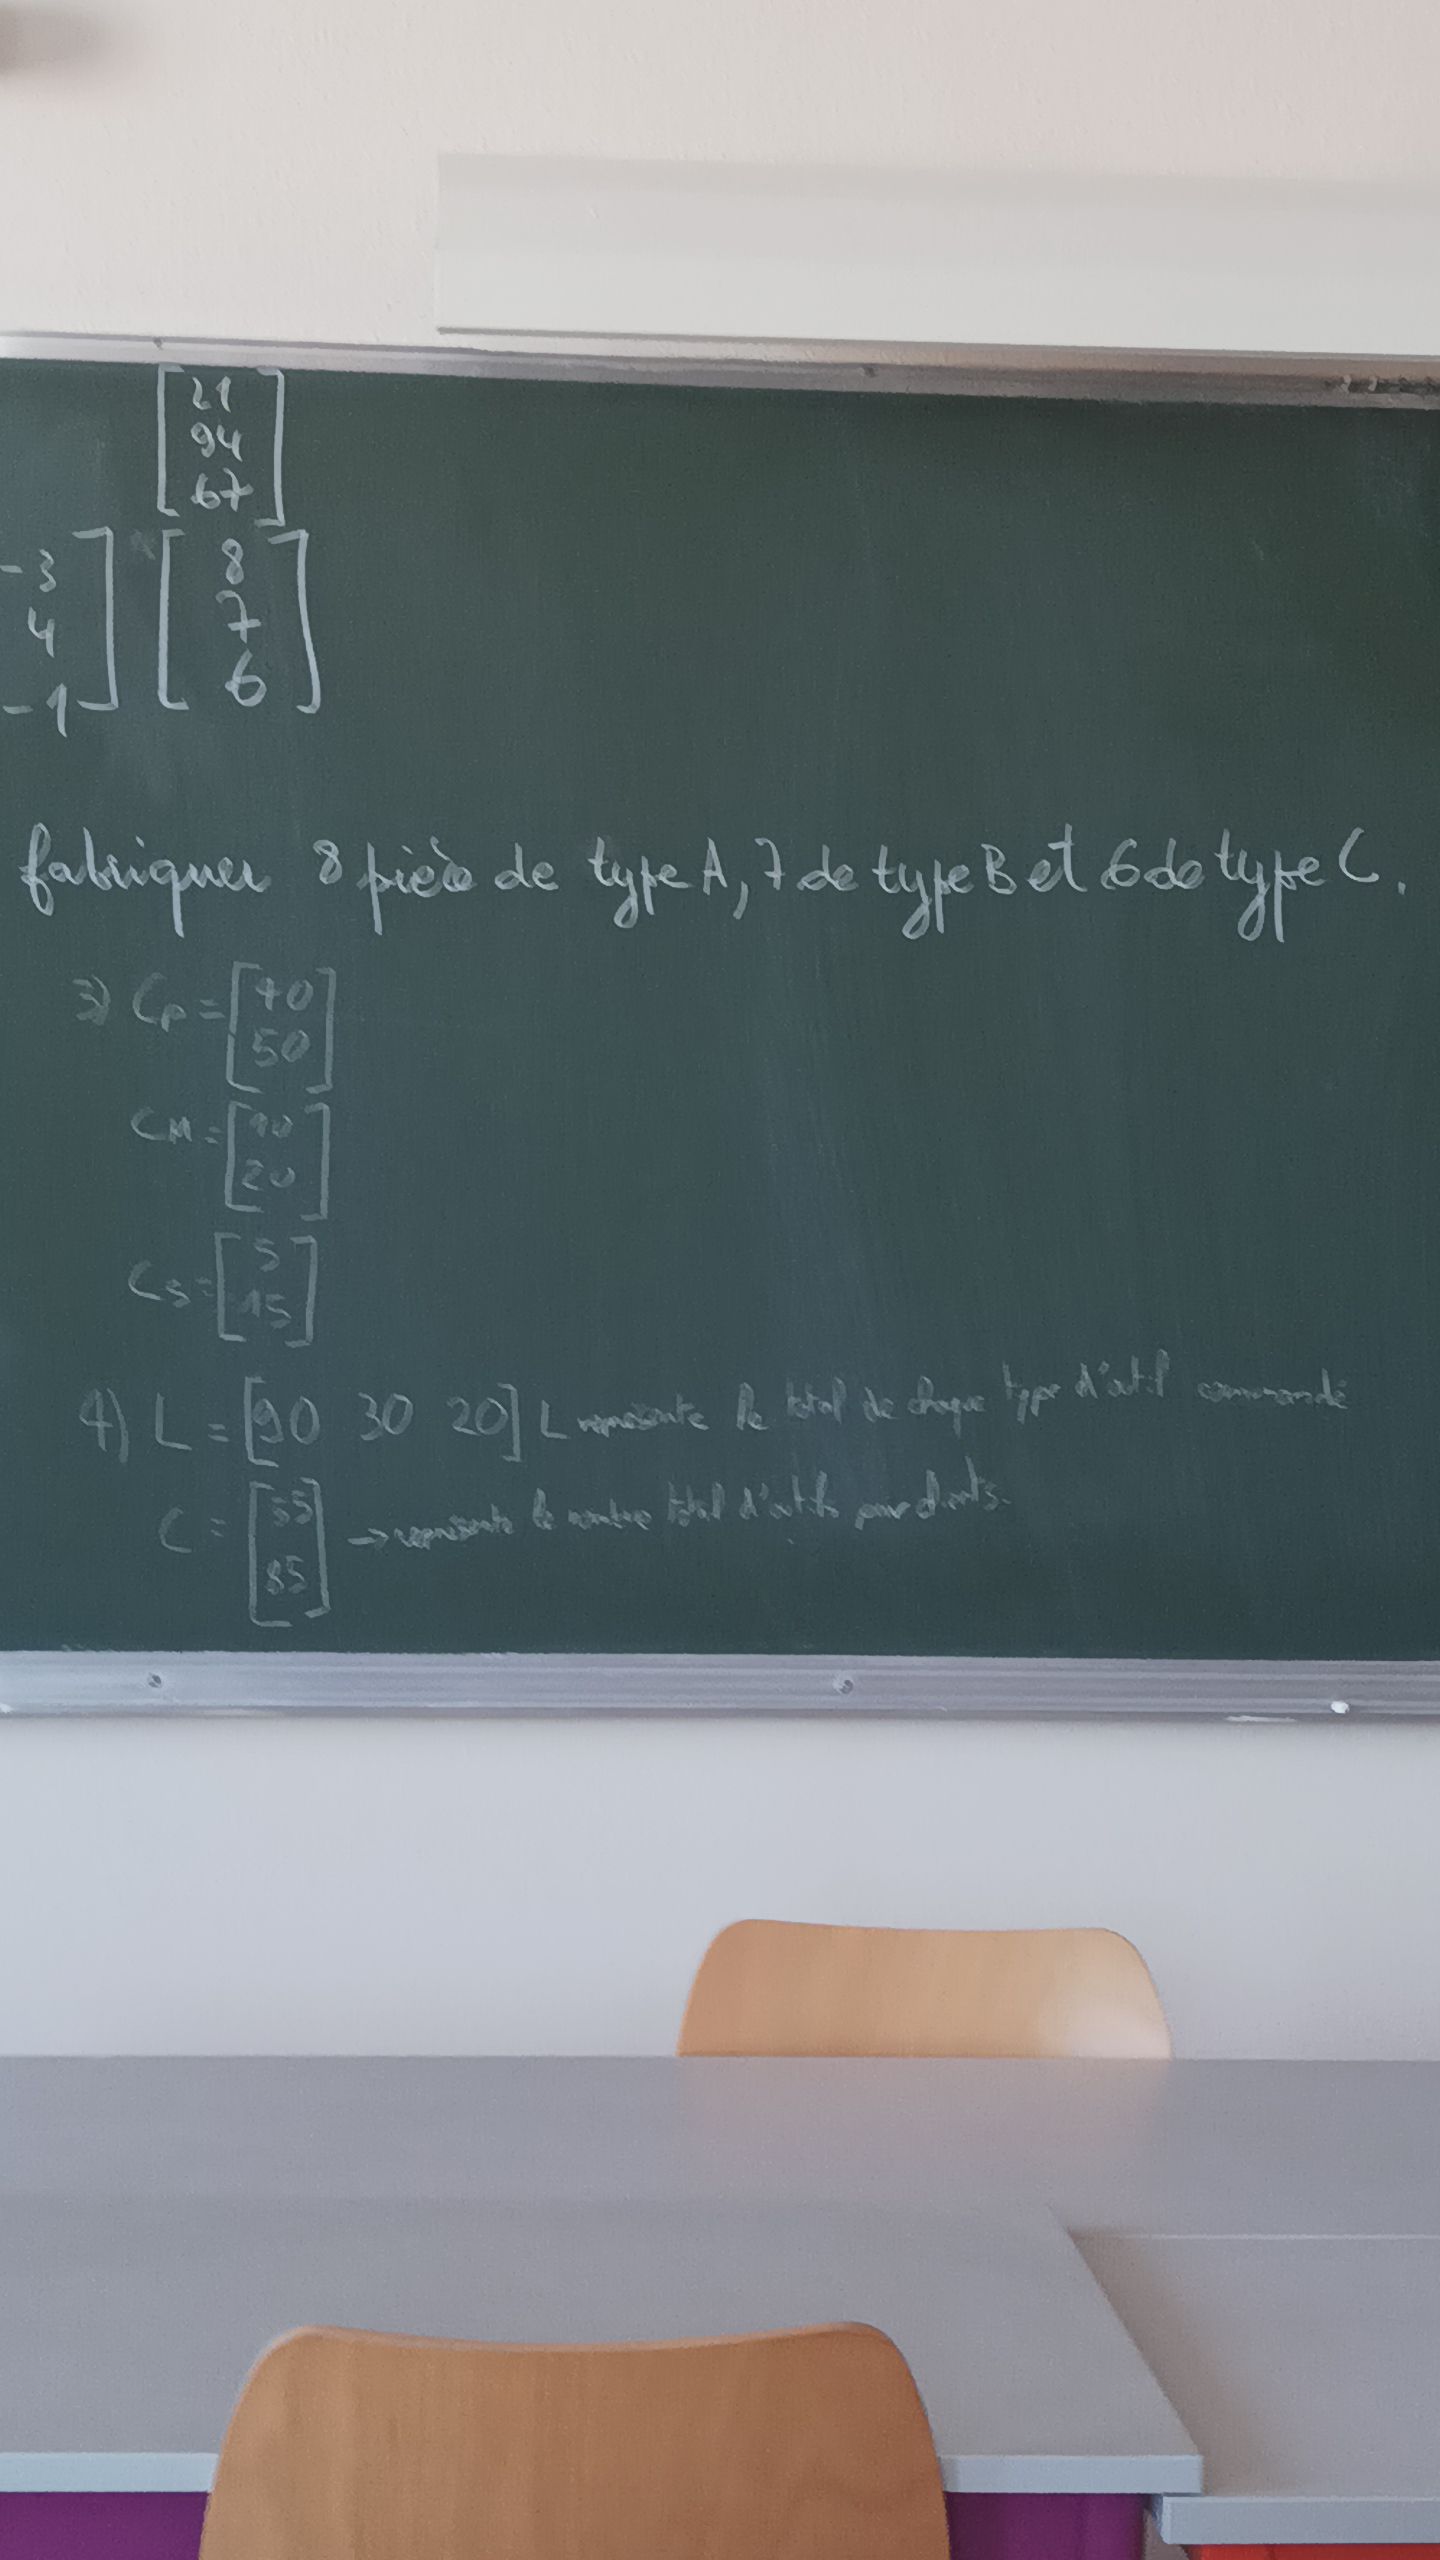 [21
94
67]
-3
4
-1] [8
7
6]
fabriquer 8 pièce de type A, 7 de type B et 6 de type C.
3) CP = [40
50]
CM = [10
20]
CS = [5
15]
4) L = [90 30 20] L représente le total de chaque type d'outil commandé
C = [55
85] → représente le nombre total d'outils par clients.